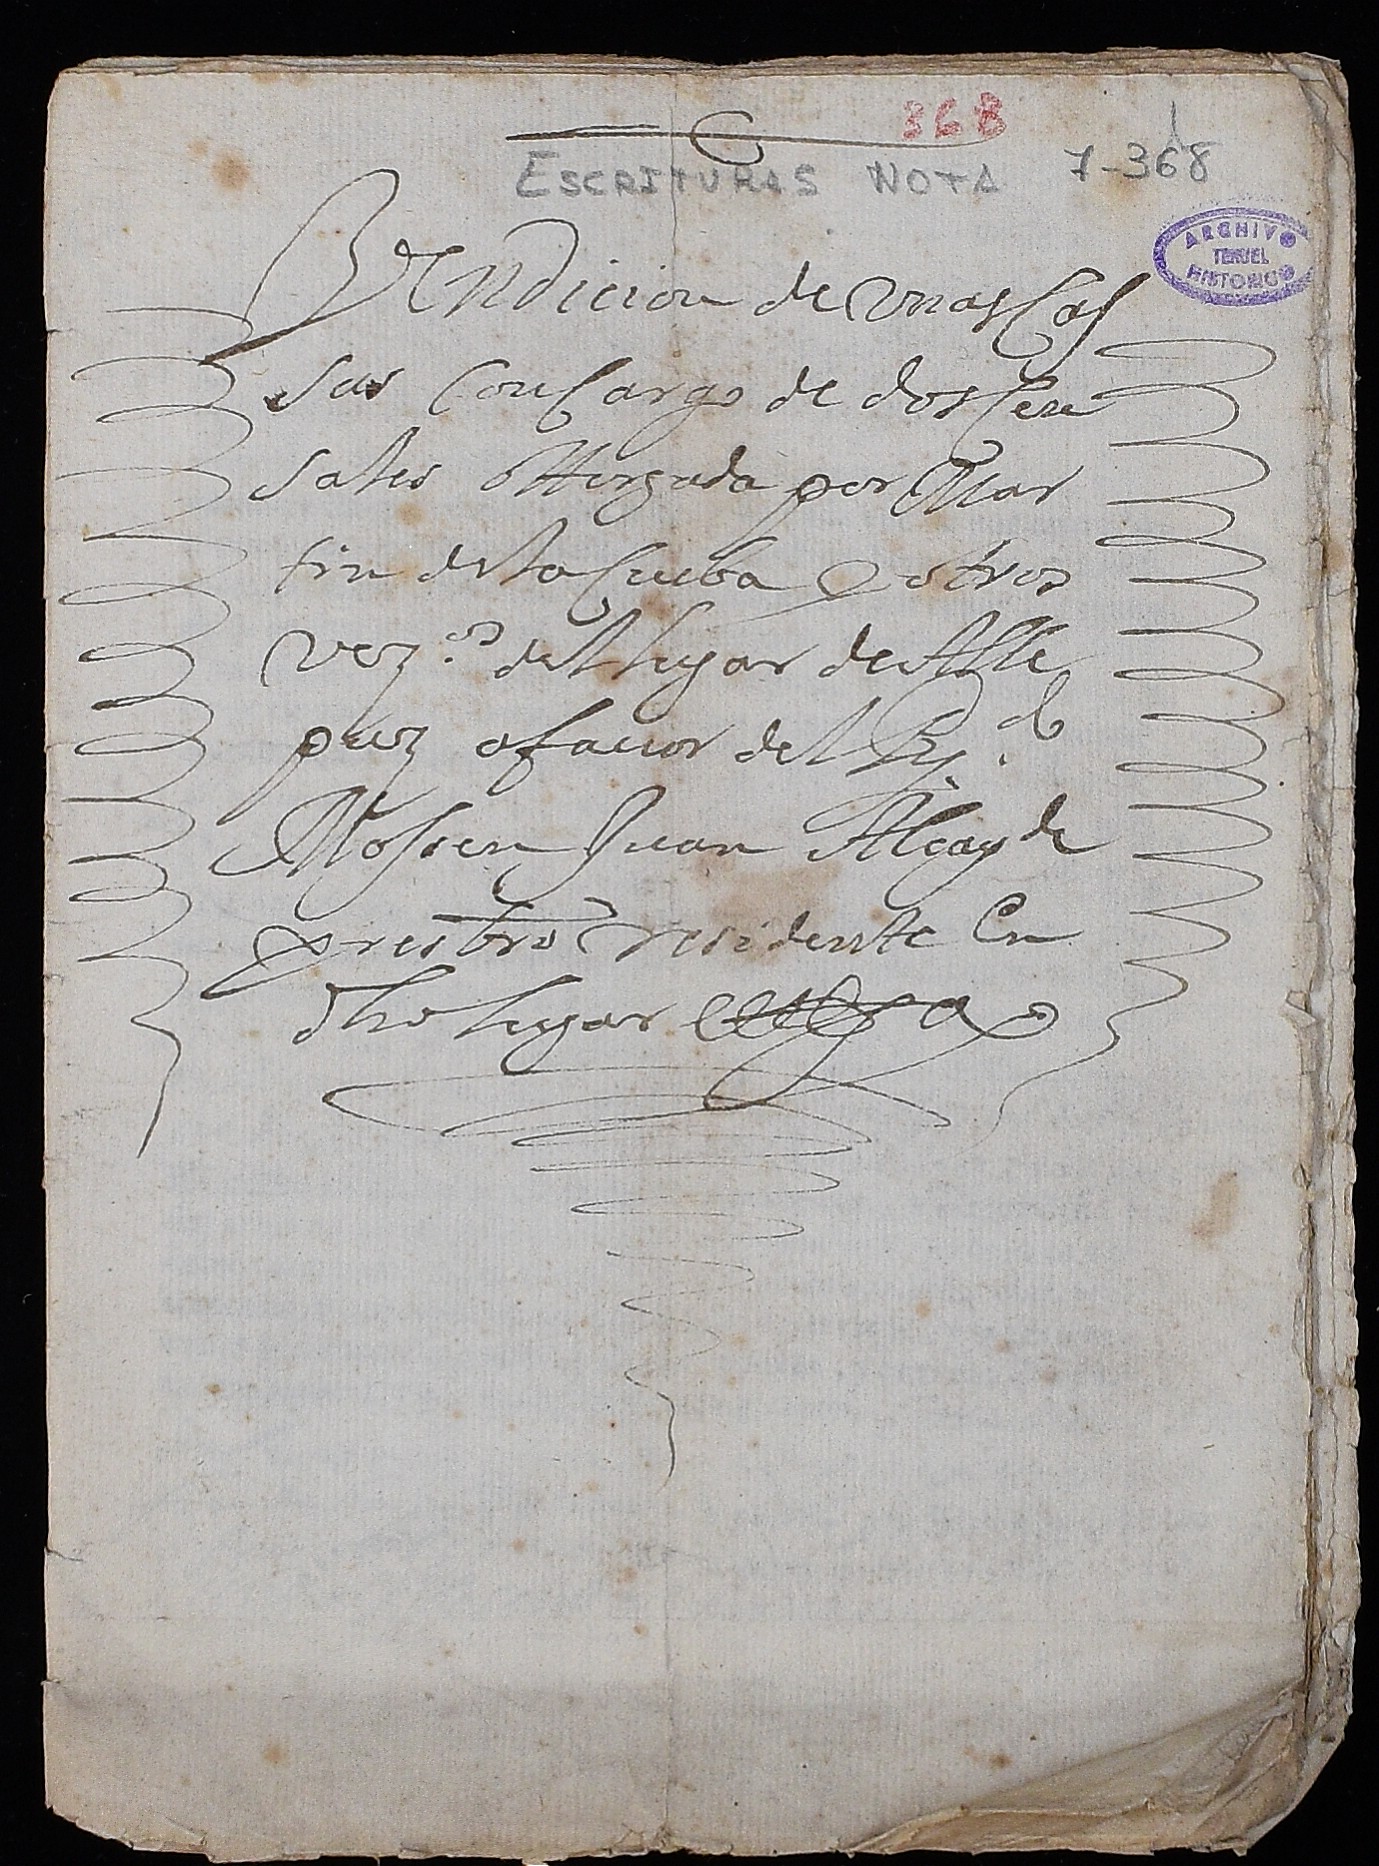 368
ESCRITURAS NOTA 7-368
ARCHIVO
TERUEL
HISTORICO
Vendicion de unas Cas
sas con Cargo de dos Cen
sales ottorgada por Mar
tin de la Cueba y otros
vez.os del lugar de Alle
puz a fauor del R.do
Mossen Juan Alcayde
presbro residente En
dho lugar